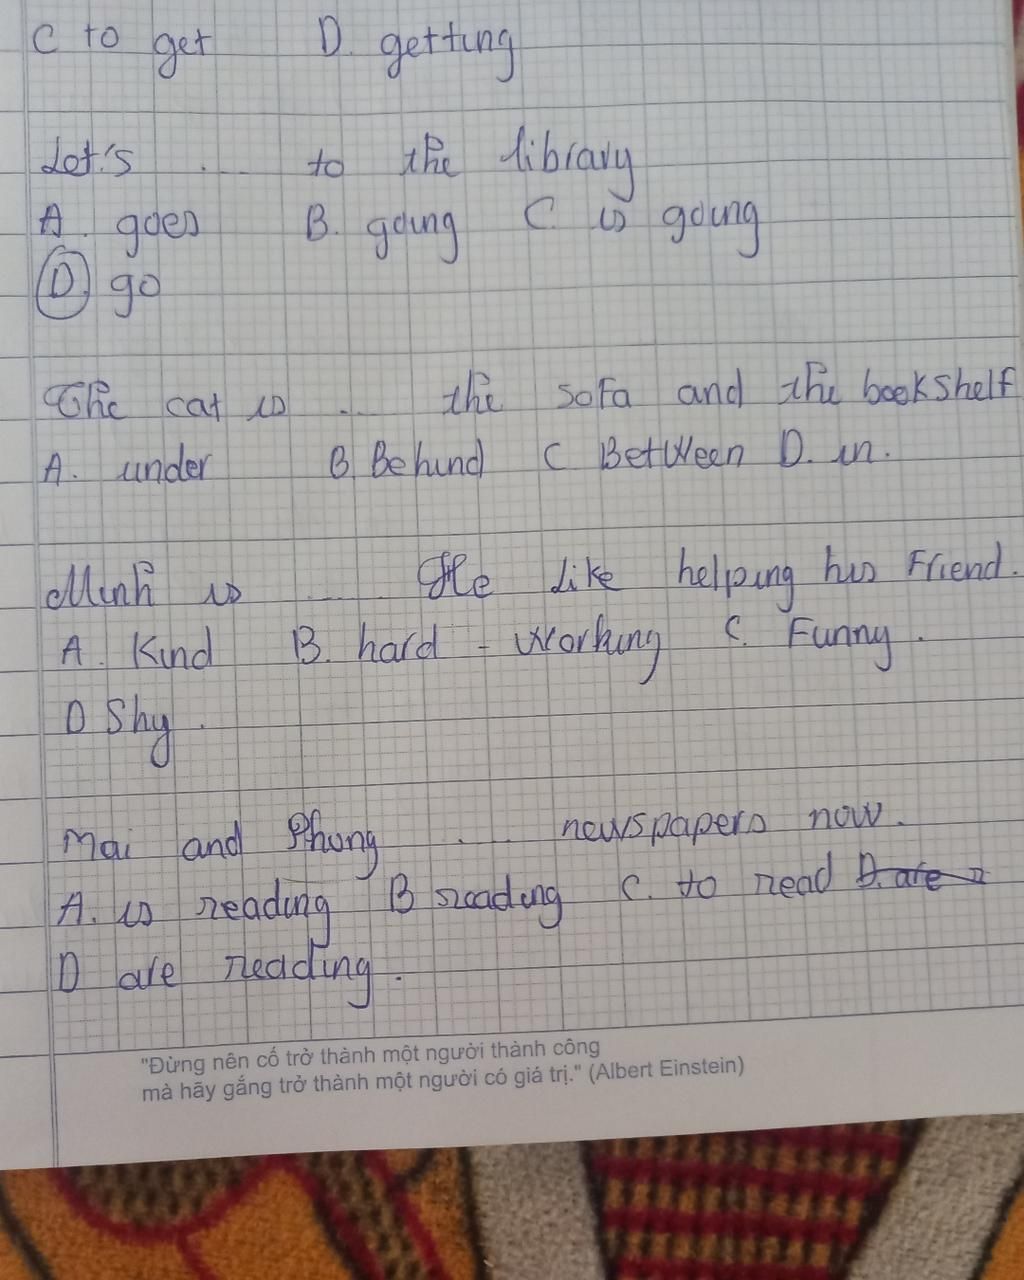 C to get D. getting
Let's ... to the library
A. goes B. going C. is going
D go
The cat is ... the sofa and the bookshelf
A. under B. Behind C Between D. in.
Minh is ... He like helping his Friend.
A. Kind B. hard - working C. Funny.
D Shy.
Mai and Phong ... newspapers now.
A. is reading B reading C. to read D. are r
D are reading.
"Đừng nên cố trở thành một người thành công
mà hãy gắng trở thành một người có giá trị." (Albert Einstein)